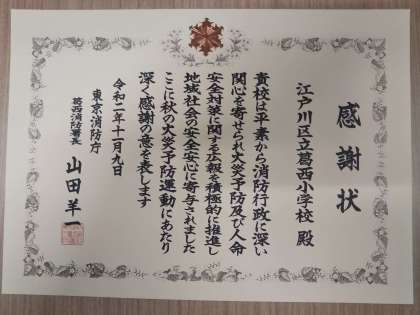 感謝状
江戸川区立葛西小学校 殿
貴校は平素から消防行政に深い
関心を寄せられ火災予防及び人命
安全対策に関する広報を積極的に推進し
地域社会の安全安心に寄与されました
ここに秋の火災予防運動にあたり
深く感謝の意を表します
令和二年十一月九日
東京消防庁
葛西消防署長 山田羊一